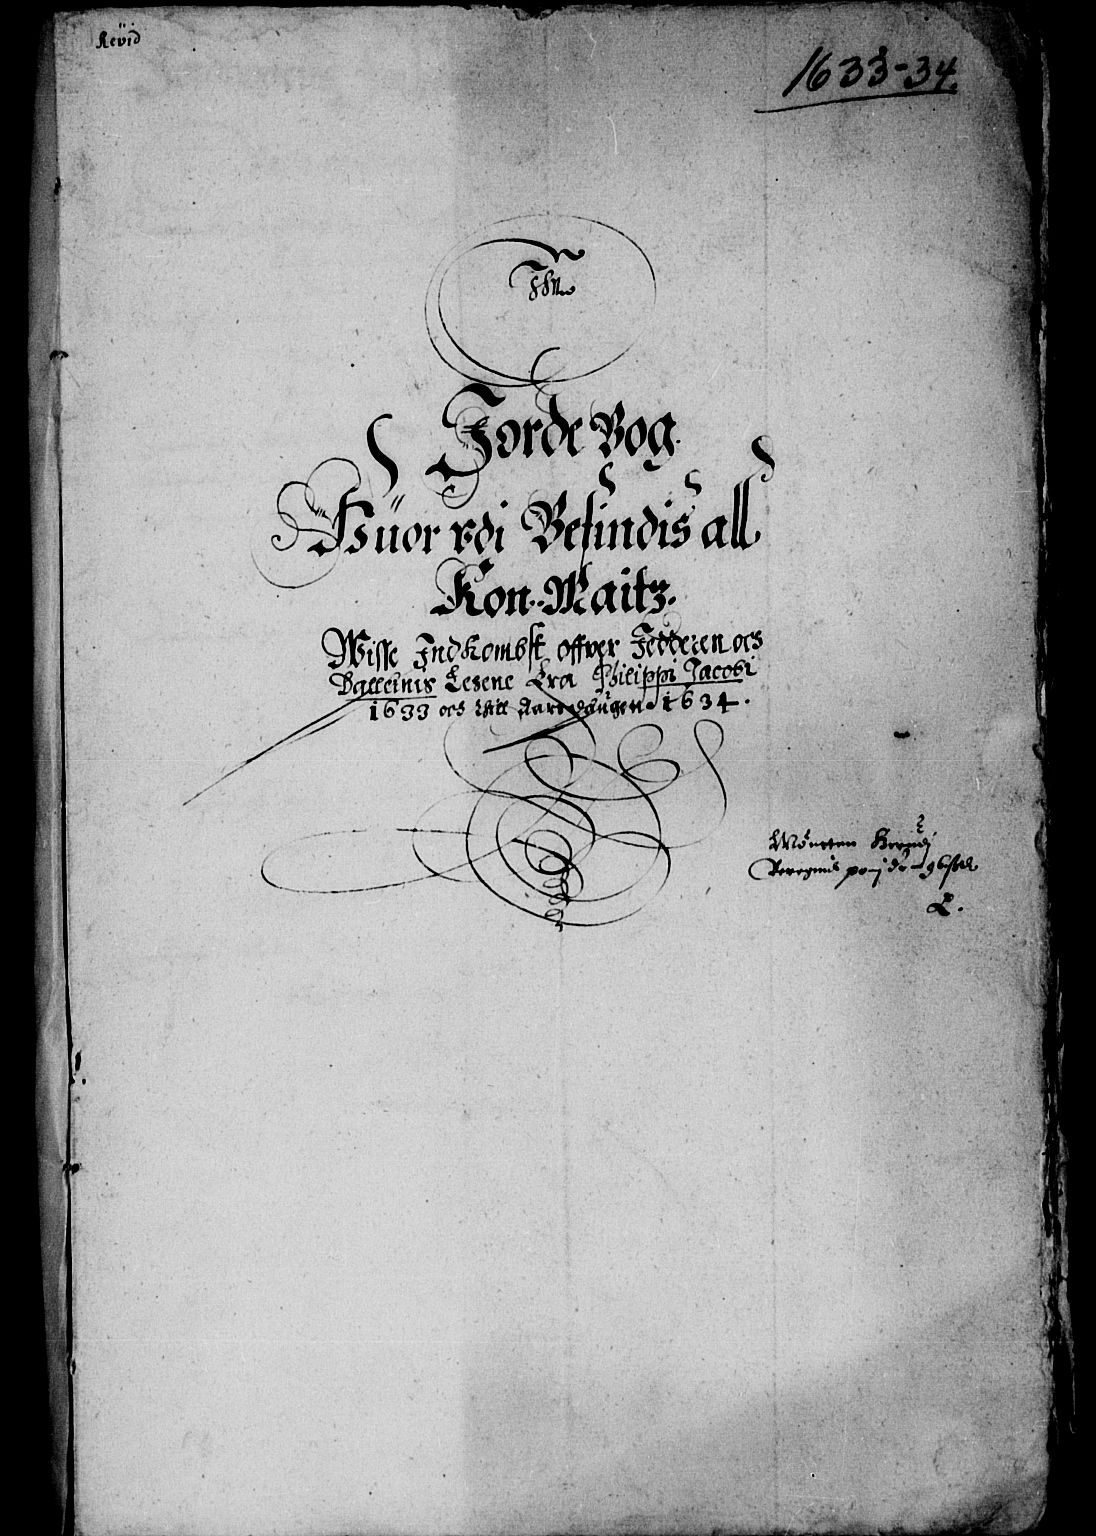 Revid
1633-34.
Jorde Bog.
Huor vdi Befindis all
Kon: Maitz.
Wisse Indkombst offuer Jedderen och
Dallernis Lehne Fra Philippi Jacobi
1633 och till Aarsdaugen 1634.